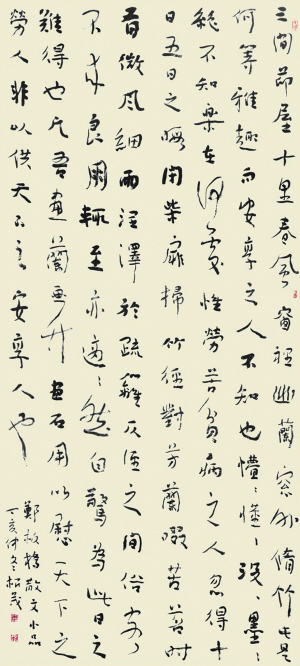 三間茆屋十里春風窗裡幽蘭窗外脩竹此是
何等雅趣而安享之人不知也懵〻懂〻没〻墨〻
絕不知樂在何處惟勞苦貧病之人忽得十
日五日之暇閉柴扉掃竹徑對芳蘭啜苦茗時
有微風細雨潤澤於疏籬仄徑之間俗客
不來良朋輒至亦適〻然自驚為此日之
難得也凡吾畫蘭畫竹畫石用以慰天下之
勞人非以供天下之安享人也
鄭板橋散文小品
丁亥仲冬